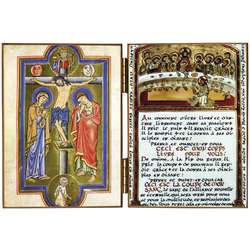 Au moment d'être livré et d'en-
trer librement dans sa passion
il prit le pain il rendit grâce
il le rompit et le donna à ses
disciples en disant
Prenez et mangez-en tous
CECI EST MON CORPS
LIVRÉ POUR VOUS.
De même, à la fin du repas, il
prit la coupe de nouveau il rendit
grâce et la donna à ses disciples
en disant
Prenez et buvez-en tous car
CECI EST LA COUPE DE MON
SANG, le sang de l'alliance nouvelle
et éternelle qui sera versé pour vous
et pour la multitude, en rémission des
péchés Vous ferez cela en mémoire de moi